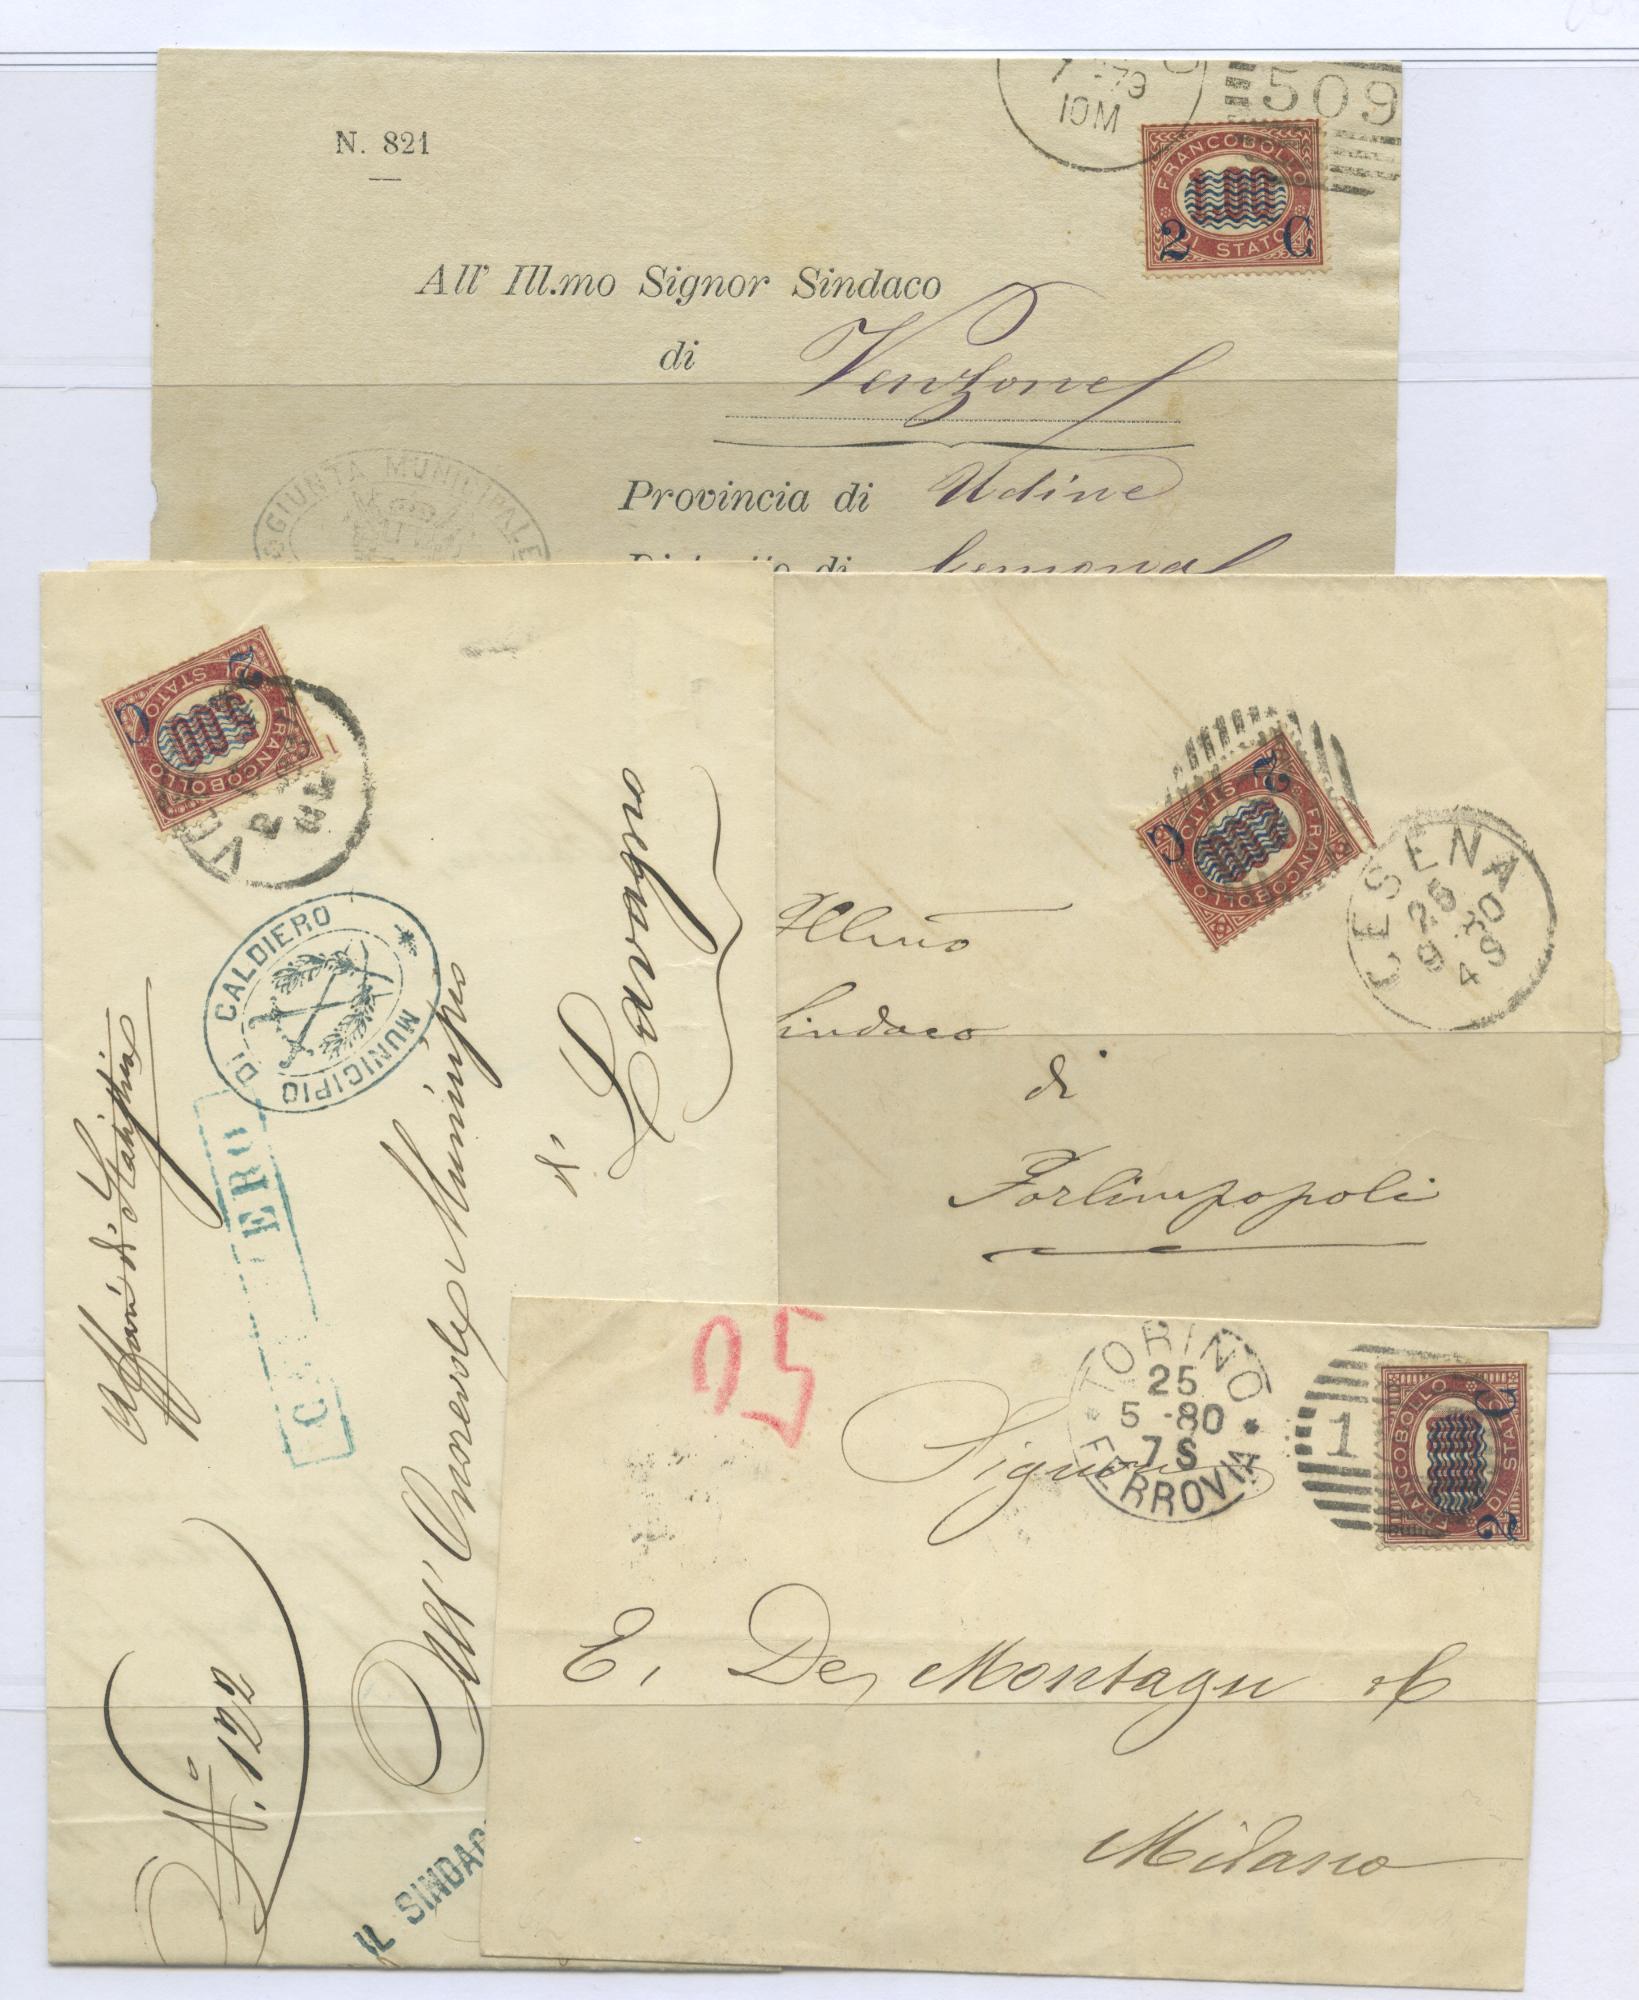 -79
10M
509
N. 821
FRANCOBOLLO
DI STATO
2 C
All' Ill.mo Signor Sindaco
di Venzone
Provincia di Udine
GIUNTA MUNICIPALE
Distretto di Gemona
FRANCOBOLLO
DI STATO
2 C
MUNICIPIO DI CALDIERO
Affari d'
N.º 122
All' Onorevole Municipio
di Lavagno
IL SINDAC
FRANCOBOLLO
DI STATO
2 C
CESENA
26
9 80
4 9
Illmo
Sindaco
di
Forlimpopoli
25
TORINO
25
5 -80
7 S
FERROVIA
1
FRANCOBOLLO
DI STATO
2 C
Signor
E. De Montagu & C
Milano